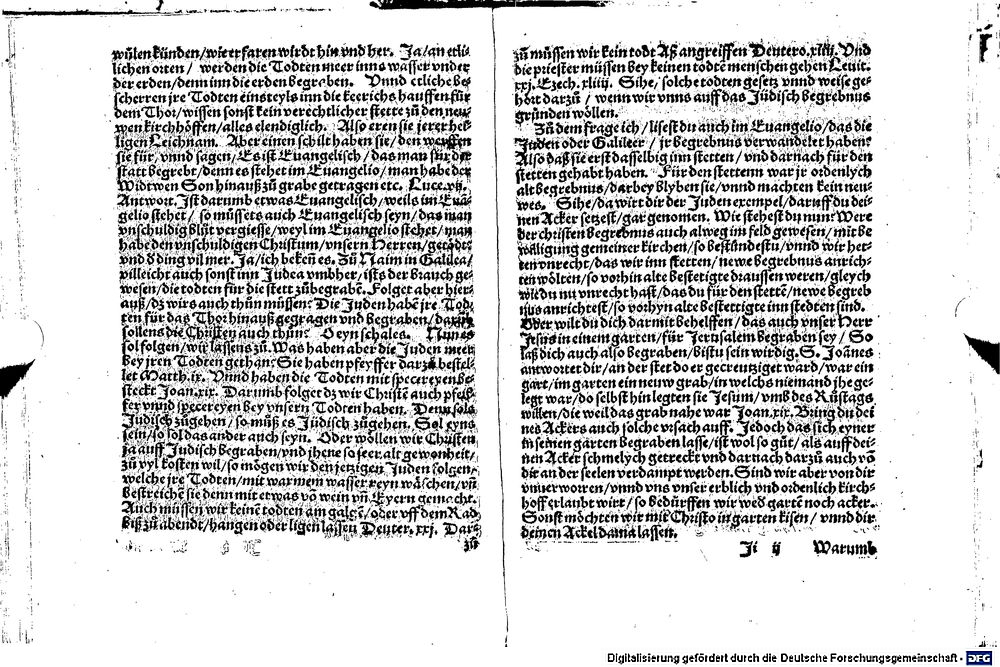 wülen künden/wie erfaren wirdt hin vnd her. Ja/an etli-
lichen orten/ werden die Todten meer inns wasser vnder
der erden/denn inn die erden begraben. Vnnd etliche be-
scherren jre Todten eins teyls inn die keerichs hauffen für
dem Thor/wissen sonst kein verechtlicher stette zů den neu-
wen kirchhöffen/alles elendiglich. Also eren sie jerer hei-
ligen Leichnam. Aber einen schilt haben sie/den werffen
sie für/vnnd sagen/Es ist Euangelisch/das man für der
statt begrebt/denn es stehet im Euangelio/man habe der
Widtwen Son hinauß zů grabe getragen etc. Luce.vij.
Antwort. Ist darumb etwas Euangelisch/weils im Euā
gelio stehet/ so müssets auch Euangelisch seyn/das man
vnschuldig blůt vergiesse/weyl im Euangelio stehet/man
habe den vnschuldigen Christum/vnsern Herren/getödt:
vnd d ding vil mer. Ja/ich bekeñ es. Zů Naim in Galilea/
villeicht auch sonst inn Judea vmbher/ists der brauch ge-
wesen/die todten für die stett zůbegrabē. Folget aber hier-
auß/dz wirs auch thůn müssen: Die Juden habē jre Tod-
ten für das Thor hinauß gegragen vnd begraben/darum
sollens die Christen auch thůn: Beyn schales. Nun es
sol folgen/wir lassens zů. Was haben aber die Juden meer
bey jren Todten gethan: Sie haben pfeyffer darzů bestel-
let Matth.ix. Vnnd haben die Todten mit specereyen be-
steckt Joan.xix. Darumb folget dz wir Christē auch pfeif-
fer vnnd specereyen bey vnsern Todten haben. Denn sols
Jüdisch zůgehen/so můß es Jüdisch zůgehen. Sol eyns
sein/so sol das ander auch seyn. Oder wöllen wir Christen
ja auff Jüdisch begraben/vnd jhene so feer alt gewonheit/
zů vyl kosten wil/so mögen wir den jetzigen Juden folgen/
welche jre Todten/mit warmem wasser reyn wäschen/vñ
bestreichē sie denn mit etwas vō wein vñ Eyern gemacht.
Auch müssen wir keinē todten am galgē/oder vff dem Rad
biß zů abendt/hangen oder ligen lassen Deuter.xxj. Dar-
zů
zů müssen wir kein todt Aß angreiffen Deutero.xiiij. Vnd
die priester müssen bey keinen todtē menschen gehen Leuit.
xxj. Ezech.xliiij. Sihe/ solche todten gesetz vnnd weise ge-
hört darzů / wenn wir vnns auff das Jüdisch begrebnus
gründen wöllen.
Zů dem frage ich / lisest du auch im Euangelio/das die
Juden oder Galileer / jr begrebnus verwandelet haben?
Also daß sie erst dasselbig inn stetten / vnd darnach für den
stetten gehabt haben. Für den stettenn war jr ordenlych
alt begrebnus/darbey blyben sie/vnnd machten kein neu-
wes. Sihe/da wirt dir der Juden exempel/daruff du dei-
nen Acker setzest/gar genomen. Wie stehest du nun: Were
der christen begrebnus auch alweg im feld gewesen/mit be
willigung gemeiner kirchen/so bestündestu/vnnd wir het-
ten vnrecht/das wir inn stetten/newe begrebnus anrich-
ten wölten/so vorhin alte bestetigte draussen weren/gleych
wie du nu vnrecht hast/das du für den stettē/newe begreb
nus anrichtest/so vorhyn alte bestettigte inn stedten sind.
Oder wilt du dich darmit behelffen/das auch vnser Herr
Jesus in einem garten/für Jerusalem begraben sey/ So
laß dich auch also begraben/bistu sein wirdig. S. Joānes
antwortet dir/an der stet do er gecreutziget ward/war ein
gart/im garten ein neuw grab/in welchs niemand jhe ge-
legt war/do selbst hin legten sie Jesum/vmb des Rüstags
willen/die weil das grab nahe war Joan.xix. Bring du dei
nes Ackers auch solche vrsach auff. Jedoch das sich eyner
in seinen garten begraben lasse/ist wol so gůt/als auff dei-
nen Acker schmelych getreckt vnd darnach darzů auch vō
dir an der seelen verdampt werden. Sind wir aber von dir
vnuerworren/vnnd vns vnser erblich vnd ordenlich kirch-
hoff erlaubt wirt/so bedürffen wir wed gartē noch acker.
Sonst möchten wir mit Christo in garten kisen/vnnd dir
deinen Ackeldama lassen.
Ji ij Warumb
Digitalisierung gefördert durch die Deutsche Forschungsgemeinschaft - DFG